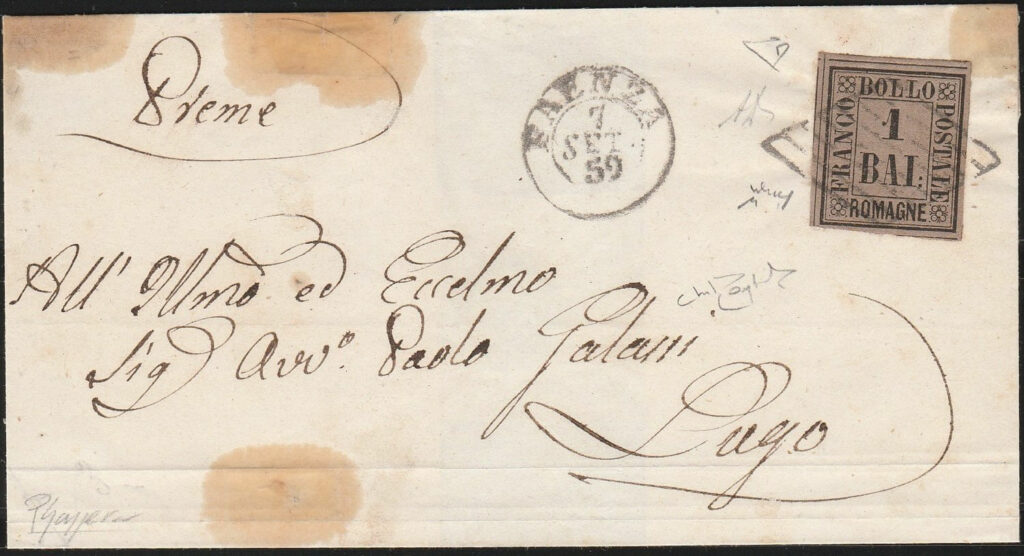 Preme
FAENZA
7
SET.
59
FRANCO BOLLO POSTALE
1
BAI:
ROMAGNE
All' Illmo ed Eccelmo
Sig Avvo. Paolo Galassi
Lugo